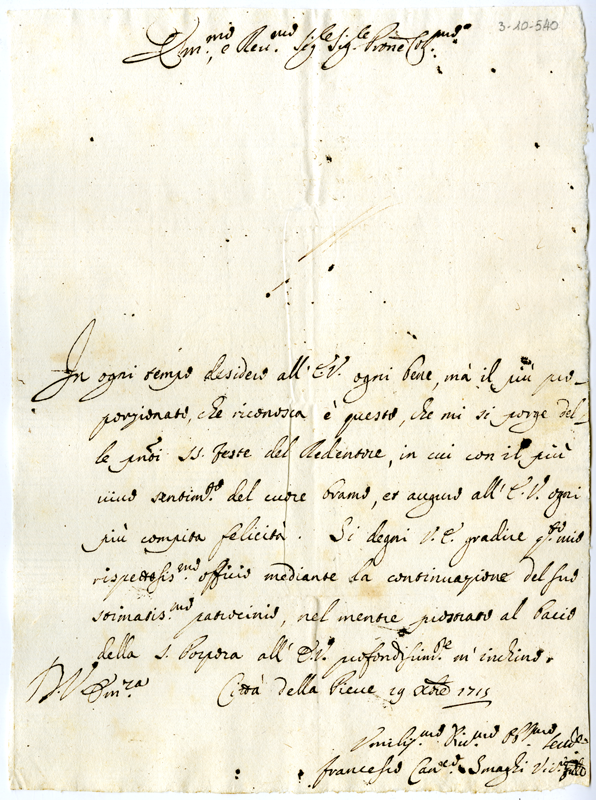 3-10-540
Em.mo, e Rev.mo Sig.re Sig.re Prone Col.mo
In ogni tempo desidero all'E.V. ogni bene, mà il più pro=
porzionato, che riconosca è questo, che mi si porge del=
le pnti SS. Feste del Redentore, in cui con il più
vivo sentim.to del cuore bramo, et auguro all'E.V. ogni
più compita felicità. Si degni V.E. gradire q.to mio
rispettosis.mo officio mediante la continuazione del suo
stimatis.mo patrocinio, nel mentre prostrato al bacio
della S. Porpora all'E.V. profondissim.te m'inchino.
D. V. Em.za
Città della Pieve 19 Xbre 1715
Umiliss.mo Div.mo Obb.mo
Francesco Can.co Smaghi